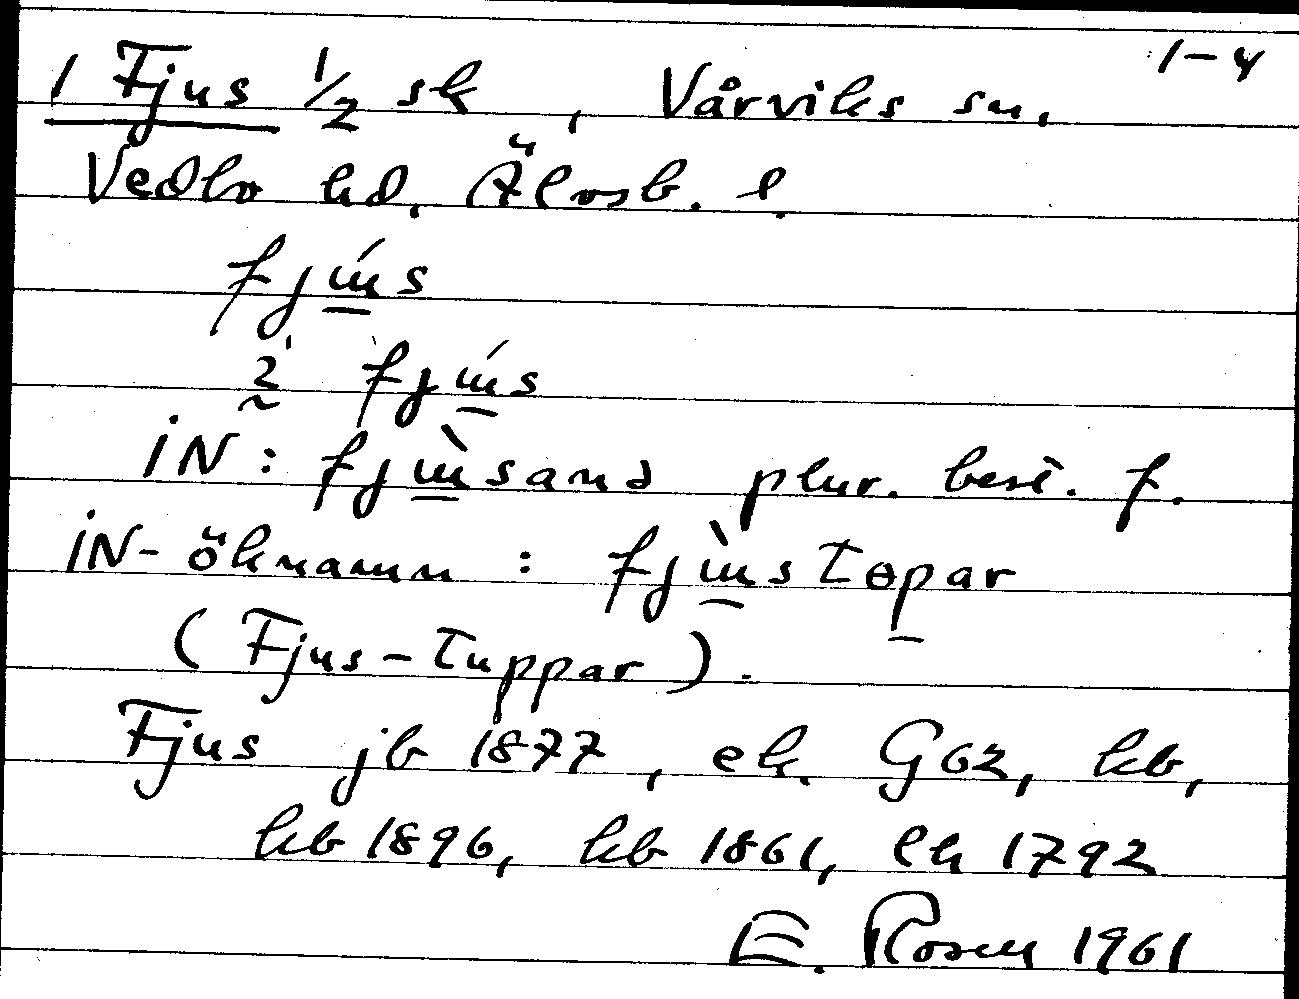 1-4
1 Fjus 1/2 sk, Vårviks sn,
Vedbo hd. Älvsb. l.
fjɯ́s
2̰' fjɯ́s
iN: fjɯ̀sand plur. best. f.
iN-öknamn: fjɯ̀stɵpar
(Fjus-tuppar).
Fjus jb 1877, ek. G 62, hb,
kb 1896, kb 1861, lh 1792
E. Rosen 1961